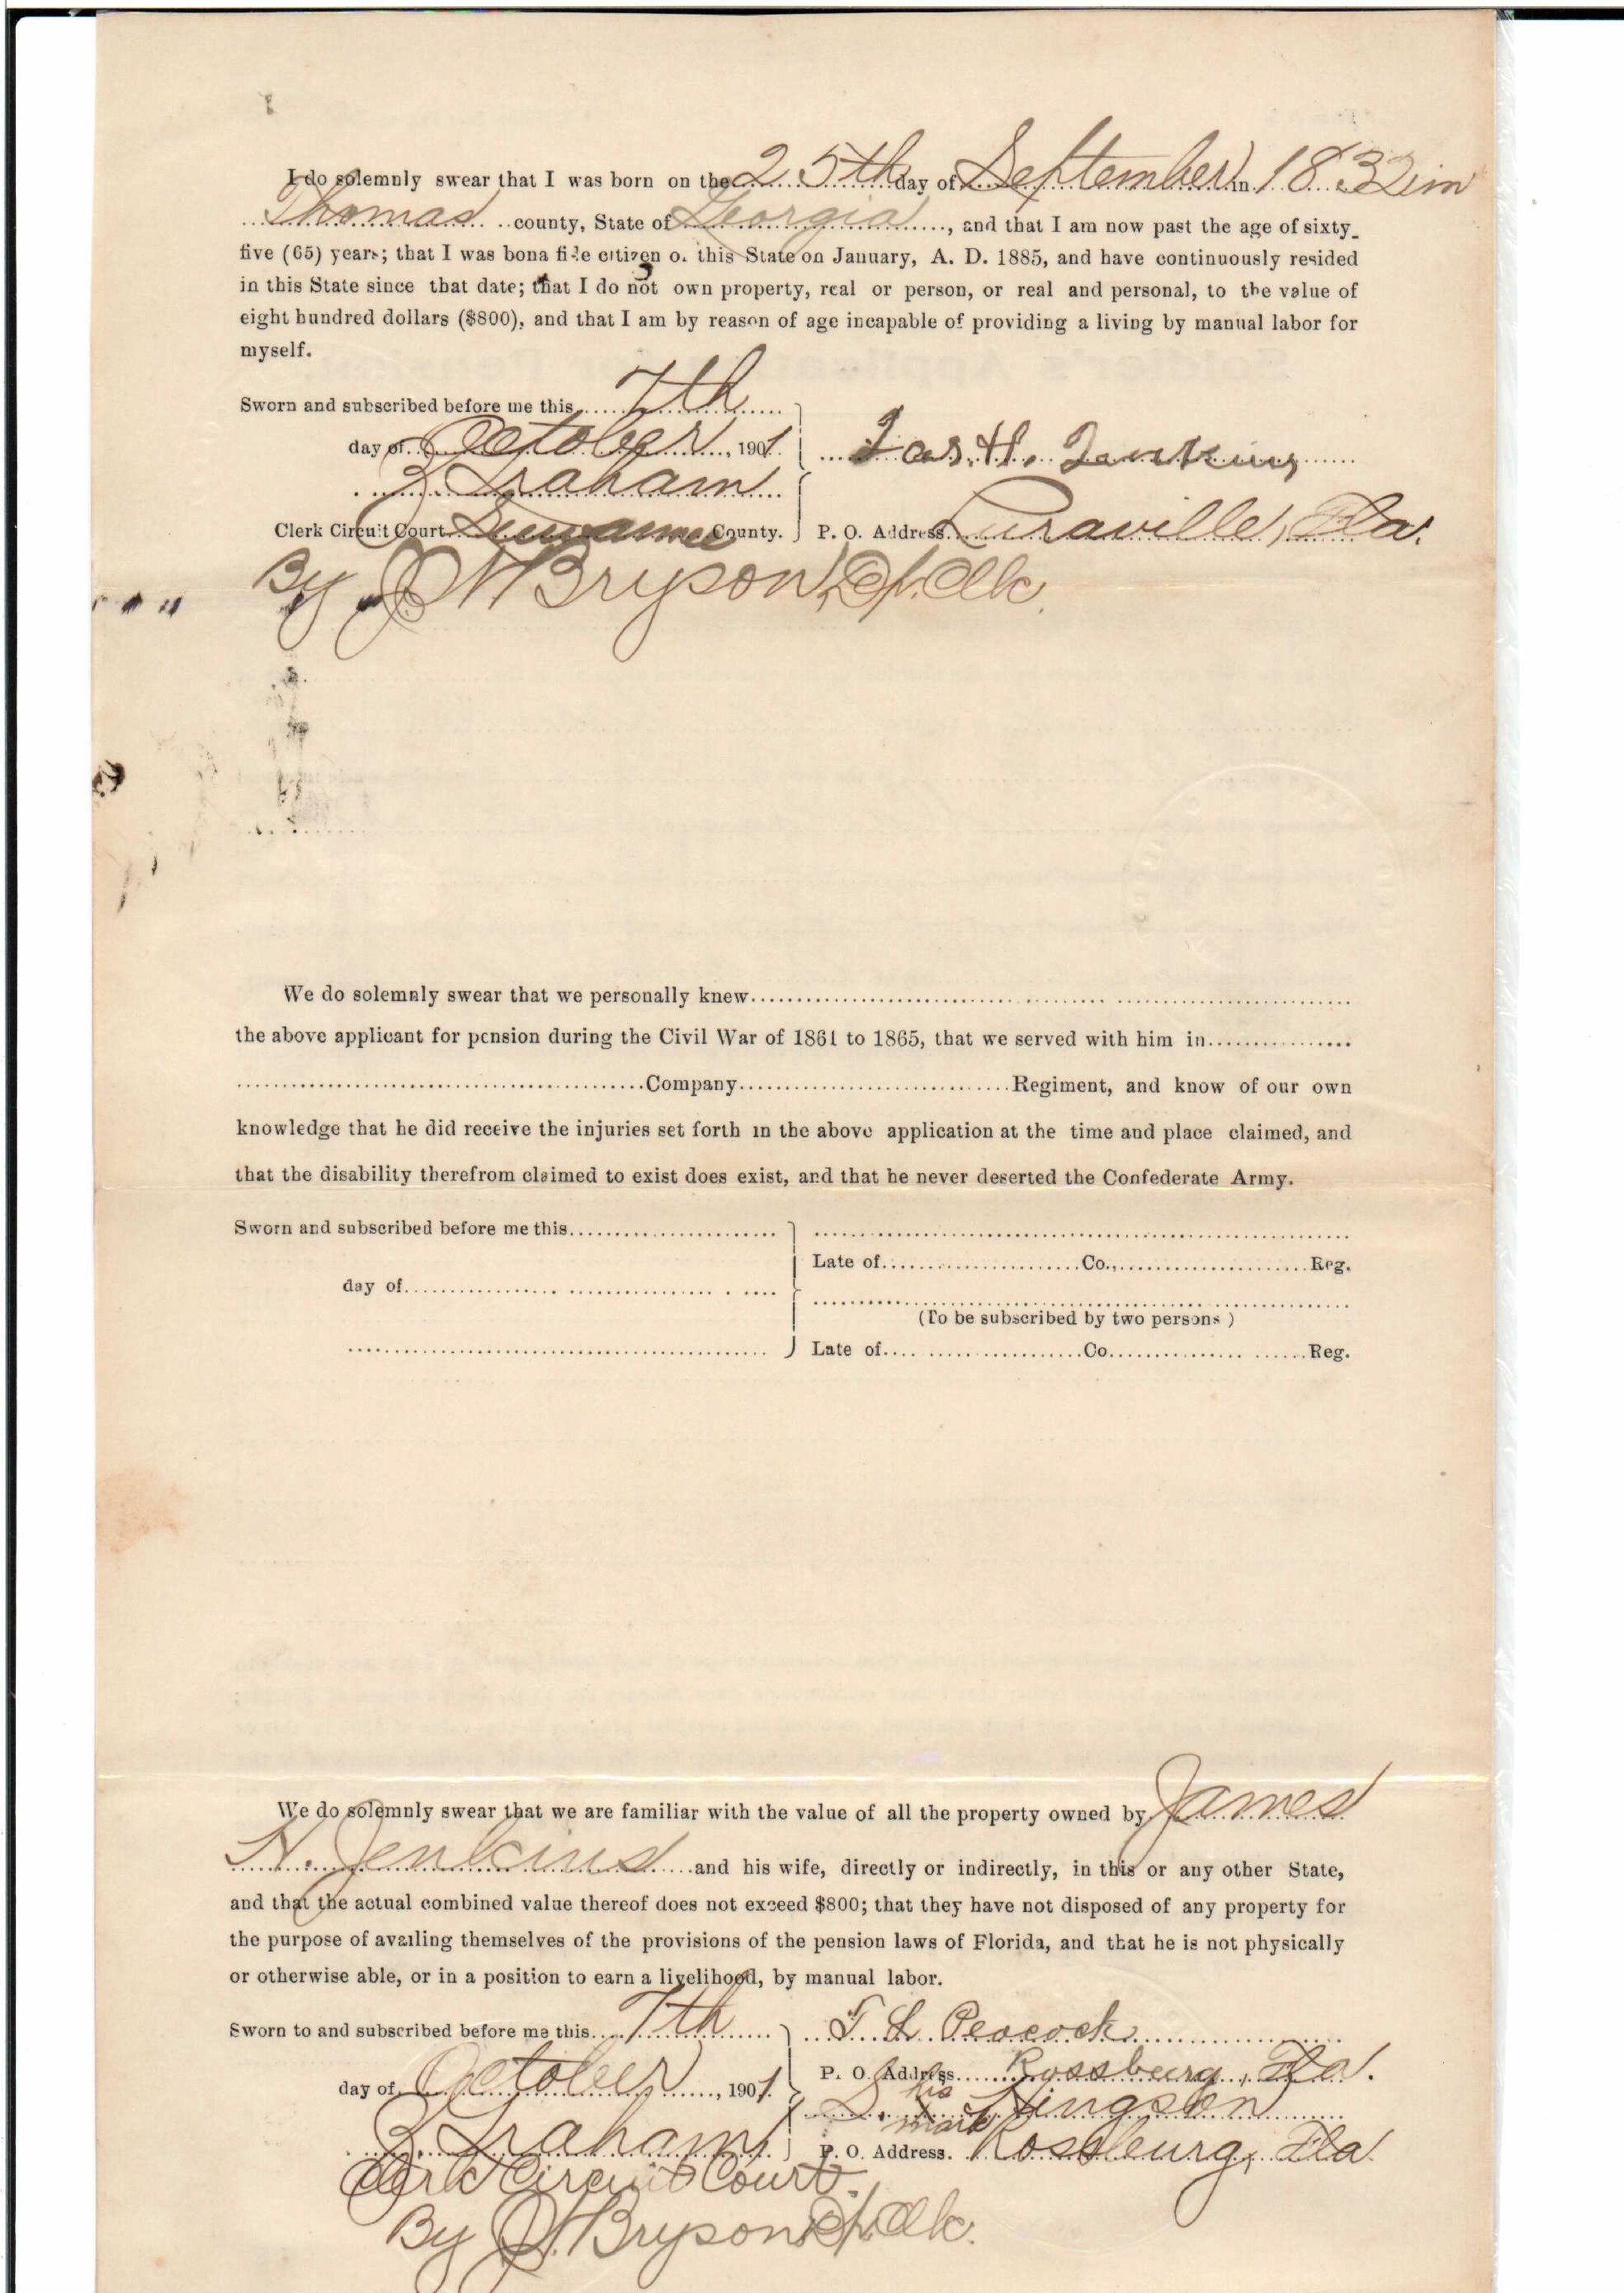 I do solemnly swear that I was born on the 25th day of September in 1832 in
Thomas county, State of Georgia, and that I am now past the age of sixty-
five (65) years; that I was bona fide citizen of this State on January, A. D. 1885, and have continuously resided
in this State since that date; that I do not own property, real or person, or real and personal, to the value of
eight hundred dollars ($800), and that I am by reason of age incapable of providing a living by manual labor for
myself.
Sworn and subscribed before me this 7th
day of October, 1901 Jas. H. Jenkins
Graham
Clerk Circuit Court Suwannee County. P. O. Address Luraville, Fla.
By Bryson, Dp. Clk.
We do solemnly swear that we personally knew
the above applicant for pension during the Civil War of 1861 to 1865, that we served with him in
Company Regiment, and know of our own
knowledge that he did receive the injuries set forth in the above application at the time and place claimed, and
that the disability therefrom claimed to exist does exist, and that he never deserted the Confederate Army.
Sworn and subscribed before me this
Late of Co., Reg.
day of
(To be subscribed by two persons)
Late of Co. Reg.
We do solemnly swear that we are familiar with the value of all the property owned by James
H. Jenkins and his wife, directly or indirectly, in this or any other State,
and that the actual combined value thereof does not exceed $800; that they have not disposed of any property for
the purpose of availing themselves of the provisions of the pension laws of Florida, and that he is not physically
or otherwise able, or in a position to earn a livelihood, by manual labor.
Sworn to and subscribed before me this 7th Peacock
P. O. Address Rossburg, Fla.
day of October, 1901 his x mark
Graham P. O. Address. Rossburg, Fla.
Clerk Circuit Court.
By Bryson Dp. Clk.